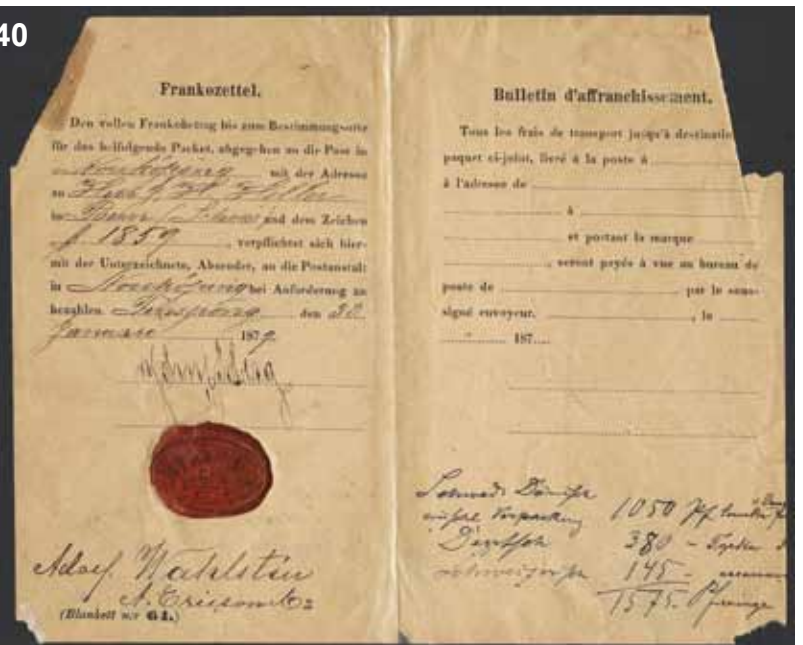 40
Frankozettel.
Den vollen Frankobetrag bis zum Bestimmungsorte
für das beifolgende Packet, abgegeben an die Post in
Norrköping mit der Adresse
an Herr
in Bern und dem Zeichen
1859, verpflichtet sich hier-
mit der Unterzeichnete, Absender, an die Postanstalt
in Norrköping bei Anforderung zu
bezahlen Finspong den 30
Januari 1879.
Adolf Wahlstén
A. Ericson
(Blankett n:r 61.)
Bulletin d'affranchissement.
Tous les frais de transport jusqu'à destinatio
paquet ci-joint, livré à la poste à
à l'adresse de
à
et portant la marque
, seront payés à vue au bureau de
poste de par le sous-
signé envoyeur. , le
187
1050 Pf
Deutsch 380 -
145 -
1575 - Pfennige